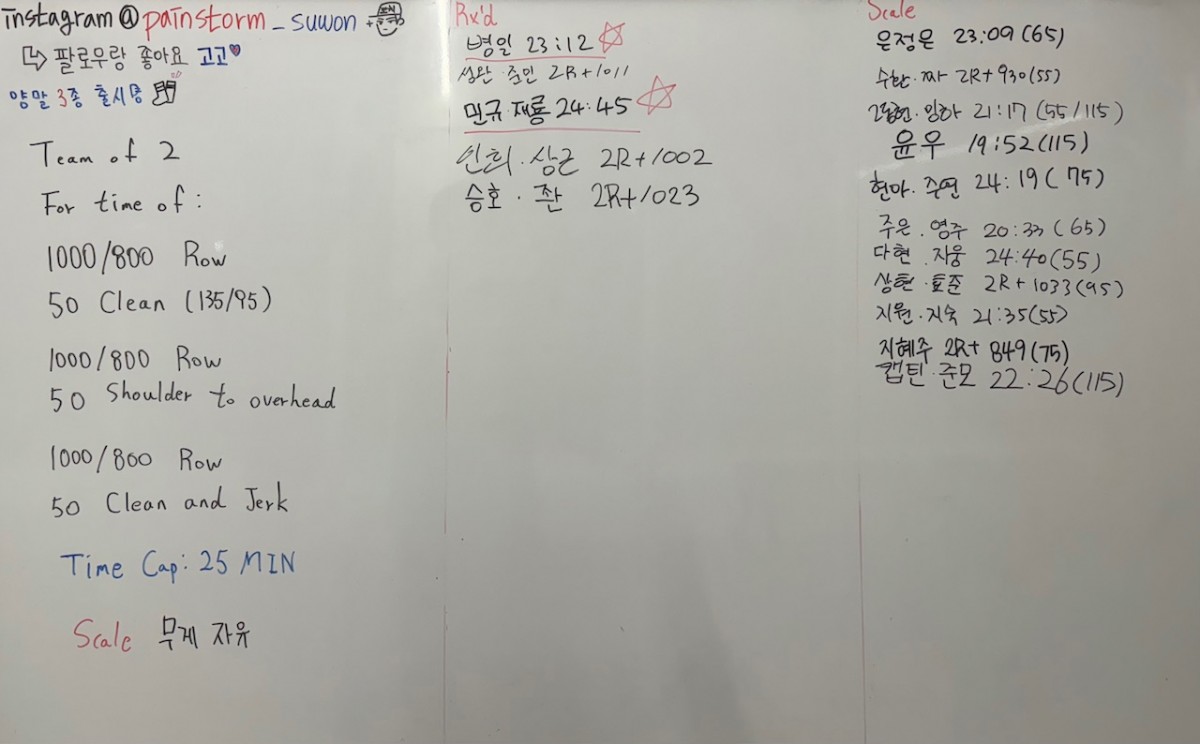 instagram@painstorm_suwon +
↳ 팔로우랑 좋아요 고고♥
양말 3종 출시콩
Team of 2
For time of:
1000/800 Row
50 Clean (135/95)
1000/800 Row
50 Shoulder to overhead
1000/800 Row
50 Clean and Jerk
Time Cap: 25 MIN
Scale 무게 자유
Rx'd
병일 23:12
성완·준민 2R+1011
민규·재룡 24:45
인희·상근 2R+1002
승호·쫜 2R+1023
Scale
은정은 23:09(65)
수환·짜 2R+930(55)
임하 21:17(55/115)
윤우 19:52(115)
현아·주연 24:19(75)
주은.영주 20:33(65)
다현.지웅 24:40(55)
상현·효준 2R+1033(95)
지원·지숙 21:35(55)
지혜주 2R+849(75)
캡틴·준모 22:26(115)